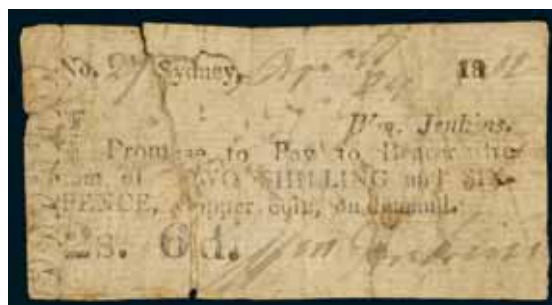 No. 27 Sydney, 18
Wm. Jenkins.
Promise to Pay to Bearer the
Sum of TWO SHILLING and SIX-
PENCE, Copper Coin, on Demand.
2s. 6d. Wm Jenkins